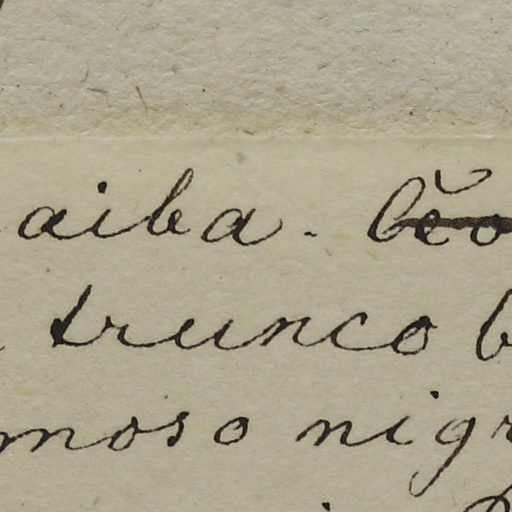 aiba.
trunco
moso nigr